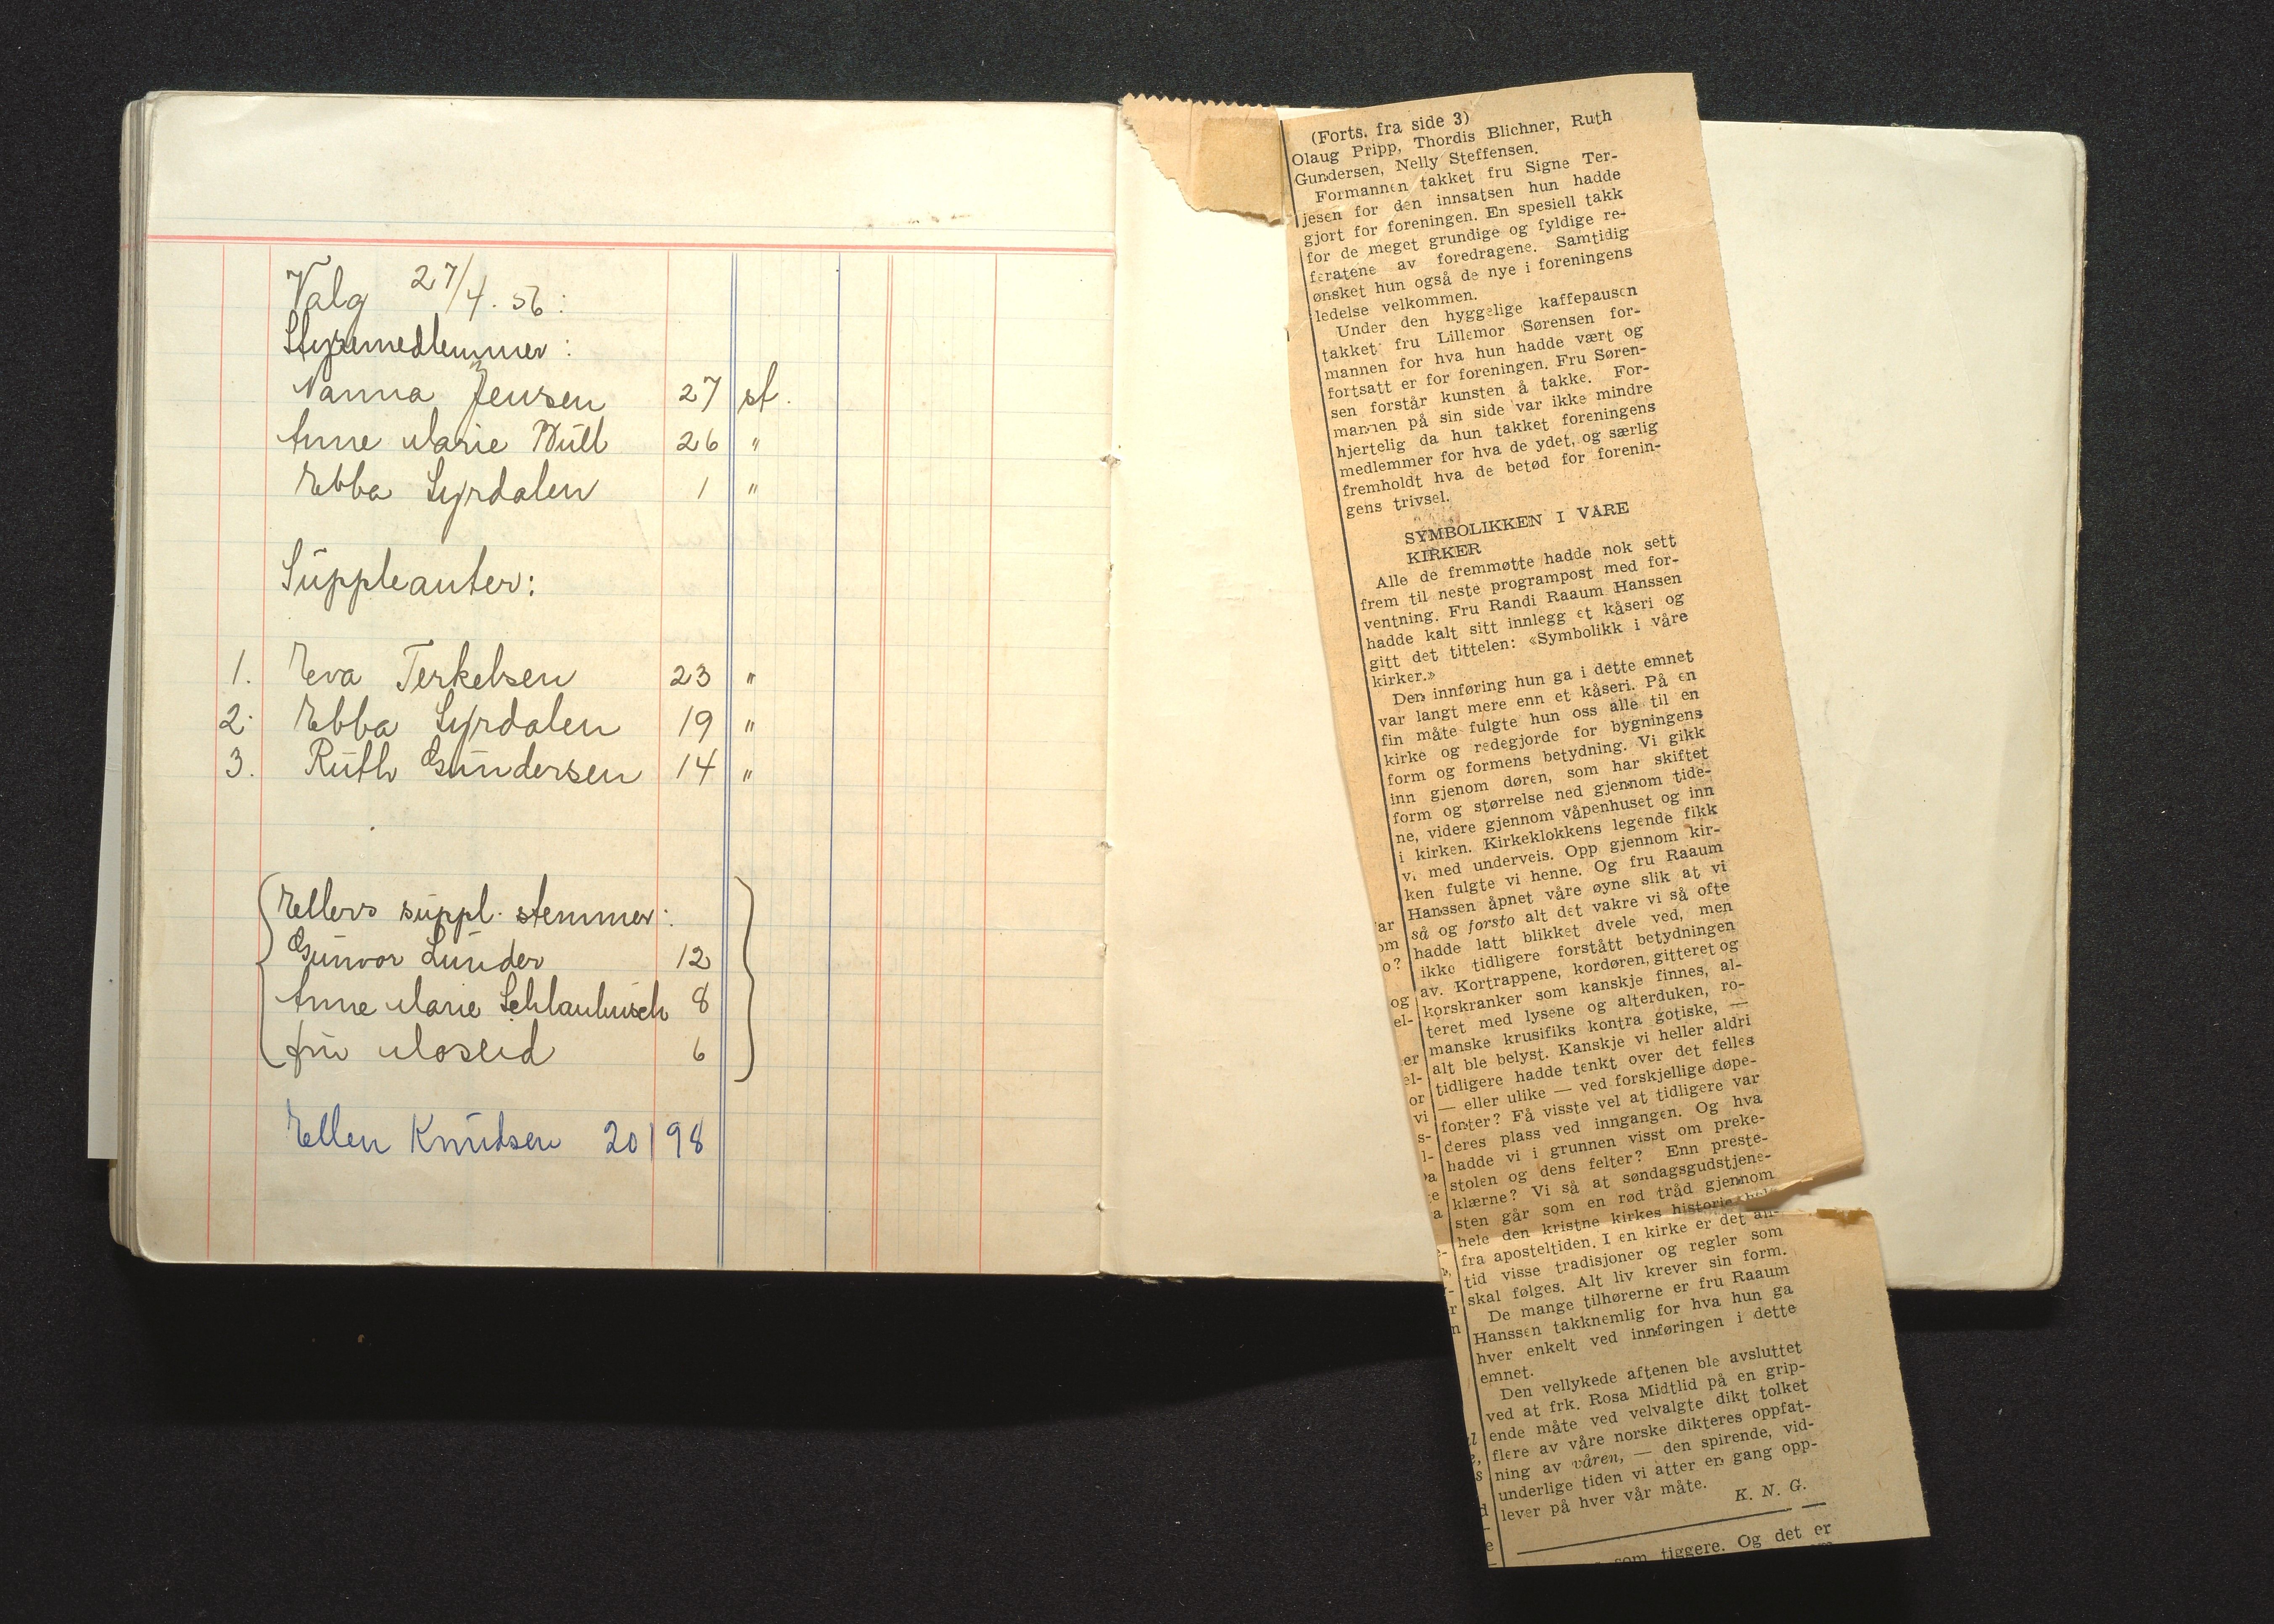 Valg 27/4. 56:
Styremedlemmer:
Nanna Jensen 27 st.
Anne Marie Bull 26 "
Ebba Syrdalen 1 "
Suppleanter:
1. Eva Terkelsen 23 "
2. Ebba Syrdalen 19 "
3. Ruth Gundersen 14 "
Ellers suppl. stemmer:
Gunvor Lunder 12
Anne Marie Schlanbusch 8
fru Moseid 6
Ellen Knudsen 20198
(Forts. fra side 3)
Olaug Pripp, Thordis Blichner, Ruth
Gundersen, Nelly Steffensen.
Formannen takket fru Signe Ter-
jesen for den innsatsen hun hadde
gjort for foreningen. En spesiell takk
for de meget grundige og fyldige re-
feratene av foredragene. Samtidig
ønsket hun også de nye i foreningens
ledelse velkommen.
Under den hyggelige kaffepausen
takket fru Lillemor Sørensen for-
mannen for hva hun hadde vært og
fortsatt er for foreningen. Fru Søren-
sen forstår kunsten å takke. For-
mannen på sin side var ikke mindre
hjertelig da hun takket foreningens
medlemmer for hva de ydet, og særlig
fremholdt hva de betød for forenin-
gens trivsel.
SYMBOLIKKEN I VARE
KIRKER
Alle de fremmøtte hadde nok sett
frem til neste programpost med for-
ventning. Fru Randi Raaum Hanssen
hadde kalt sitt innlegg et kåseri og
gitt det tittelen: «Symbolikk i våre
kirker.»
Den innføring hun ga i dette emnet
var langt mere enn et kåseri. På en
fin måte fulgte hun oss alle til en
kirke og redegjorde for bygningens
form og formens betydning. Vi gikk
inn gjenom døren, som har skiftet
form og størrelse ned gjennom tide-
ne, videre gjennom våpenhuset og inn
i kirken. Kirkeklokkens legende fikk
vi med underveis. Opp gjennom kir-
ken fulgte vi henne. Og fru Raaum
Hanssen åpnet våre øyne slik at vi
så og forsto alt det vakre vi så ofte
hadde latt blikket dvele ved, men
ikke tidligere forstått betydningen
av. Kortrappene, kordøren, gitteret og
korskranker som kanskje finnes, al-
teret med lysene og alterduken, ro-
manske krusifiks kontra gotiske, —
alt ble belyst. Kanskje vi heller aldri
tidligere hadde tenkt over det felles
— eller ulike — ved forskjellige døpe-
fonter? Få visste vel at tidligere var
deres plass ved inngangen. Og hva
hadde vi i grunnen visst om preke-
stolen og dens felter? Enn preste-
klærne? Vi så at søndagsgudstjene-
sten går som en rød tråd gjennom
hele den kristne kirkes historie
fra aposteltiden. I en kirke er det all-
tid visse tradisjoner og regler som
skal følges. Alt liv krever sin form.
De mange tilhørerne er fru Raaum
Hanssen takknemlig for hva hun ga
hver enkelt ved innføringen i dette
emnet.
Den vellykede aftenen ble avsluttet
ved at frk. Rosa Midtlid på en grip-
ende måte ved velvalgte dikt tolket
flere av våre norske dikteres oppfat-
ning av våren, — den spirende, vid-
underlige tiden vi atter en gang opp-
lever på hver vår måte.
K. N. G.
som tiggere. Og det er